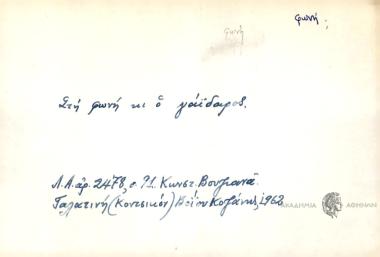 φωνή
φωνή
Στή φωνή κι ὁ γάϊδαρος.
Λ.Α. ἀρ. 2478, σ. 71. Κωνστ. Βουγιανᾶ
Γαλατινή (Κοντσικόν) Βοΐου Κοζάνης, 1962
ΑΚΑΔΗΜΙΑ ΑΘΗΝΩΝ